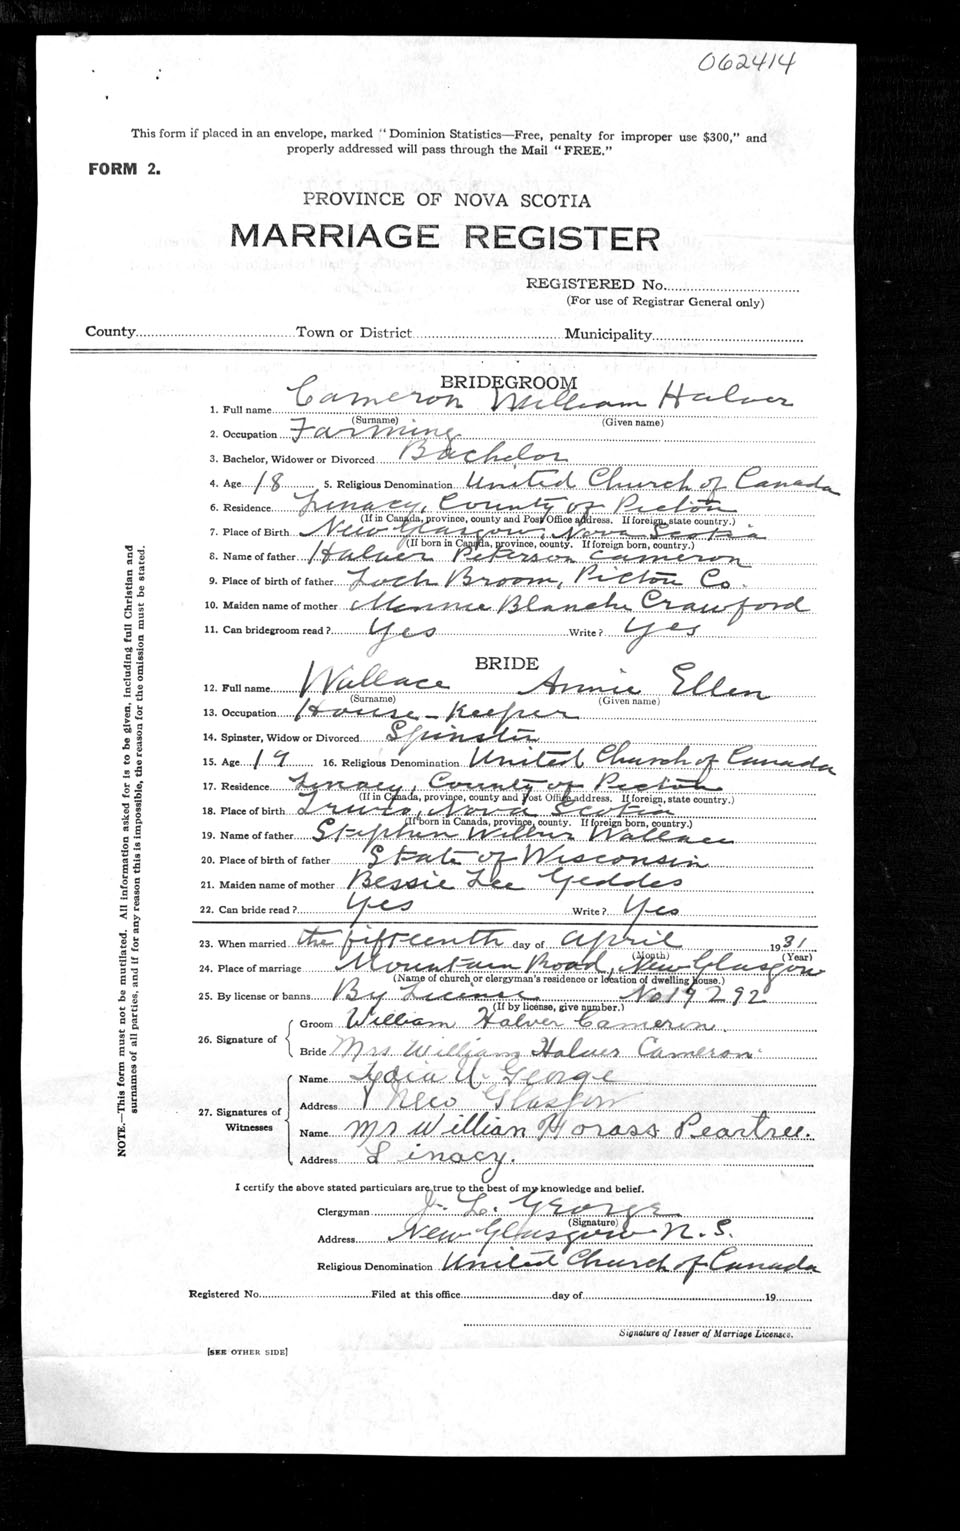 062414
This form if placed in an envelope, marked "Dominion Statistics—Free, penalty for improper use $300," and
properly addressed will pass through the Mail "FREE."
FORM 2.
PROVINCE OF NOVA SCOTIA
MARRIAGE REGISTER
REGISTERED No.
(For use of Registrar General only)
County Town or District Municipality
BRIDEGROOM
1. Full name Cameron William Halver
(Surname) (Given name)
2. Occupation Farming
3. Bachelor, Widower or Divorced Bachelor
4. Age 18 5. Religious Denomination United Church of Canada
6. Residence Linacy, County of Pictou
(If in Canada, province, county and Post Office address. If foreign, state country.)
7. Place of Birth New Glasgow, Nova Scotia
(If born in Canada, province, county. If foreign born, country.)
8. Name of father Halver Peterson Cameron
9. Place of birth of father Loch Broom, Pictou Co.
10. Maiden name of mother Minnie Blanche Crawford
11. Can bridegroom read? Yes Write? Yes
BRIDE
12. Full name Wallace Annie Ellen
(Surname) (Given name)
13. Occupation House-Keeper
14. Spinster, Widow or Divorced Spinster
15. Age 19 16. Religious Denomination United Church of Canada
17. Residence Linacy, County of Pictou
(If in Canada, province, county and Post Office address. If foreign, state country.)
18. Place of birth Truro, Nova Scotia
(If born in Canada, province, county. If foreign born, country.)
19. Name of father Stephen Wilbur Wallace
20. Place of birth of father State of Wisconsin
21. Maiden name of mother Bessie Lee Geddes
22. Can bride read? Yes Write? Yes
23. When married the fifteenth day of April 1931
(Month) (Year)
24. Place of marriage Mountain Road, New Glasgow
(Name of church or clergyman's residence or location of dwelling house.)
25. By license or banns By License No 19292
(If by license, give number.)
26. Signature of
Groom William Halver Cameron.
Bride Mrs William Halver Cameron
27. Signatures of Witnesses
Name Lydia U. George
Address New Glasgow
Name Mr Willian Horass Peartree.
Address Linacy.
I certify the above stated particulars are true to the best of my knowledge and belief.
Clergyman J. L. George
(Signature)
Address New Glasgow N.S.
Religious Denomination United Church of Canada
Registered No. Filed at this office day of 19
Signature of Issuer of Marriage Licenses.
[SEE OTHER SIDE]
NOTE.—This form must not be mutilated. All information asked for is to be given, including full Christian and
surnames of all parties, and if for any reason this is impossible, the reason for the omission must be stated.